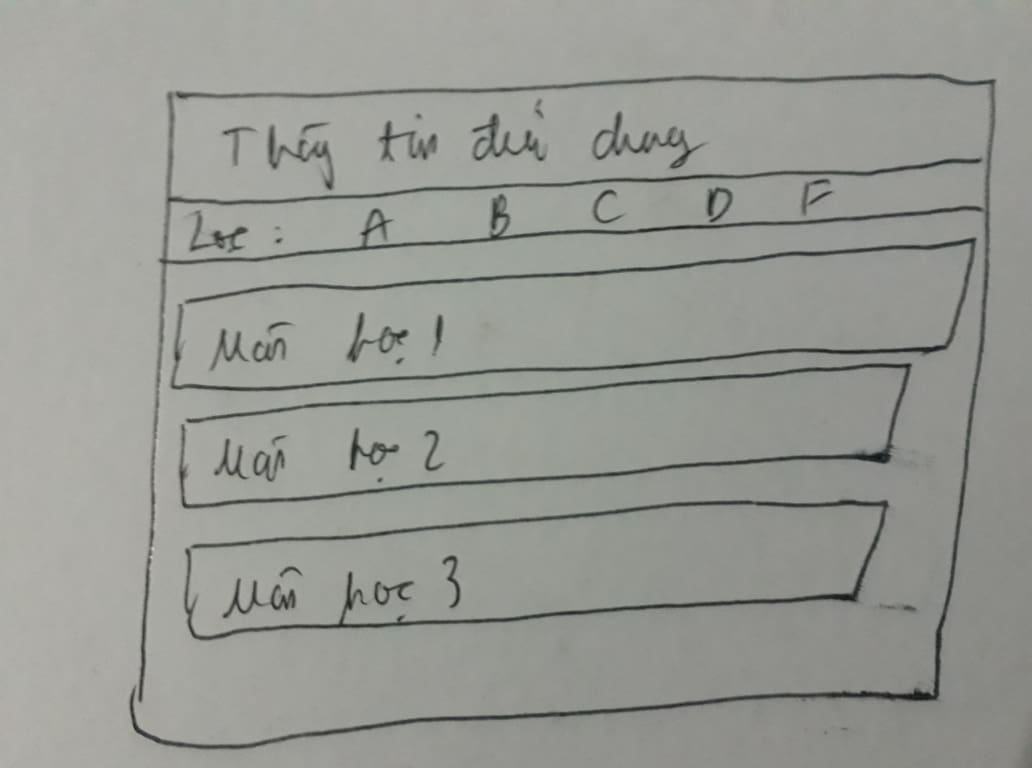 Thây tin đưi dung
Lọc : A B C D F
Môn học 1
Môn học 2
Môn học 3